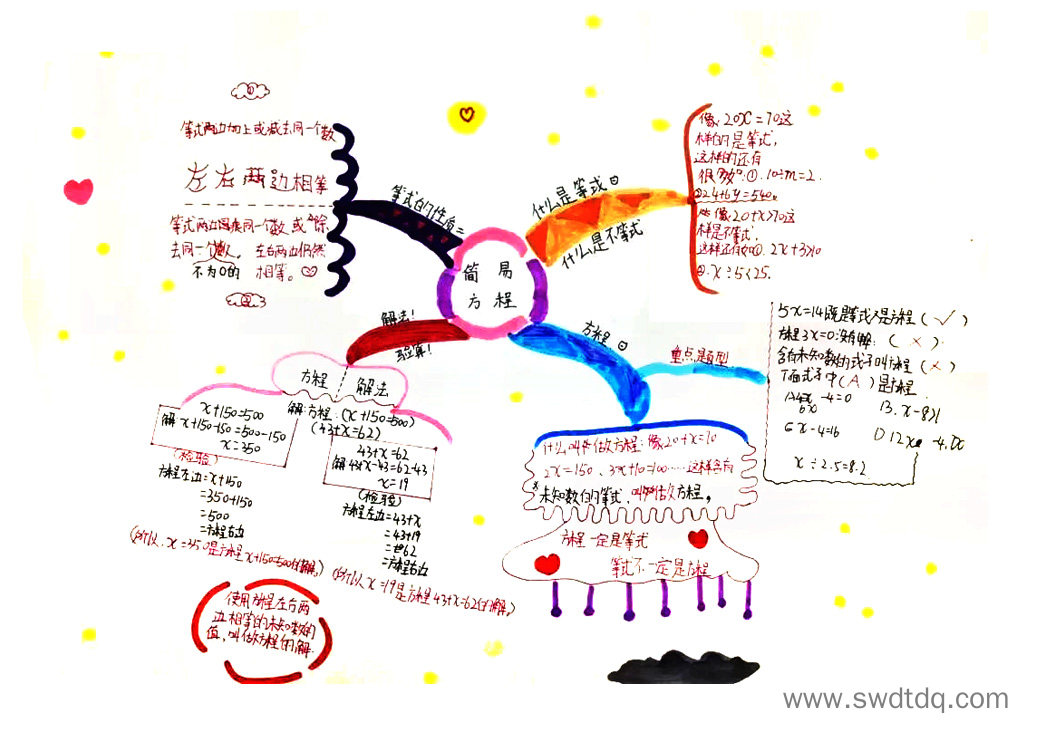 简易
方程
等式的性质
①
等式两边加上或减去同一个数
左右两边相等
等式两边乘同一个数,或除
去同一个数,左右两边仍然
不为0的 相等。
什么是等式
什么是不等式
像:20x=70这
样的是等式,
这样的还有
很多如:①.10÷m=2.
②24+6y=540。
像:20+x>70这
样是不等式,
这样还有如①.2x+3>10
②.x÷5<25.
解法!
验算!
方程 解法
解:方程:(x+150=500)
(43+x=62)
x+150=500
解:x+150-150=500-150
x=350
(检验)
方程左边=x+150
=350+150
=500
=方程右边
(所以,x=350是方程x+150=500的解。)
43+x=62
解43+x-43=62-43
x=19
(检验)
方程左边=43+x
=43+19
=62
=方程右边
(所以x=19是方程43+x=62的解。)
使用方程左右两
边相等的未知数的
值,叫做方程的解.
方程.
重点题型
5x=14既是等式又是方程(✓)
方程3x=0没有解(×)
含有未知数的式子叫方程(×)
下面式子中(A)是方程
-4=0
B.x-8>1
C x-4=16
D 12x
x÷2.5=8.2
什么叫做方程:像20+x=70
2x=150、3x+10=100……这样含有
*未知数的等式,叫做方程。
方程一定是等式
等式不一定是方程
www.swdtdq.com